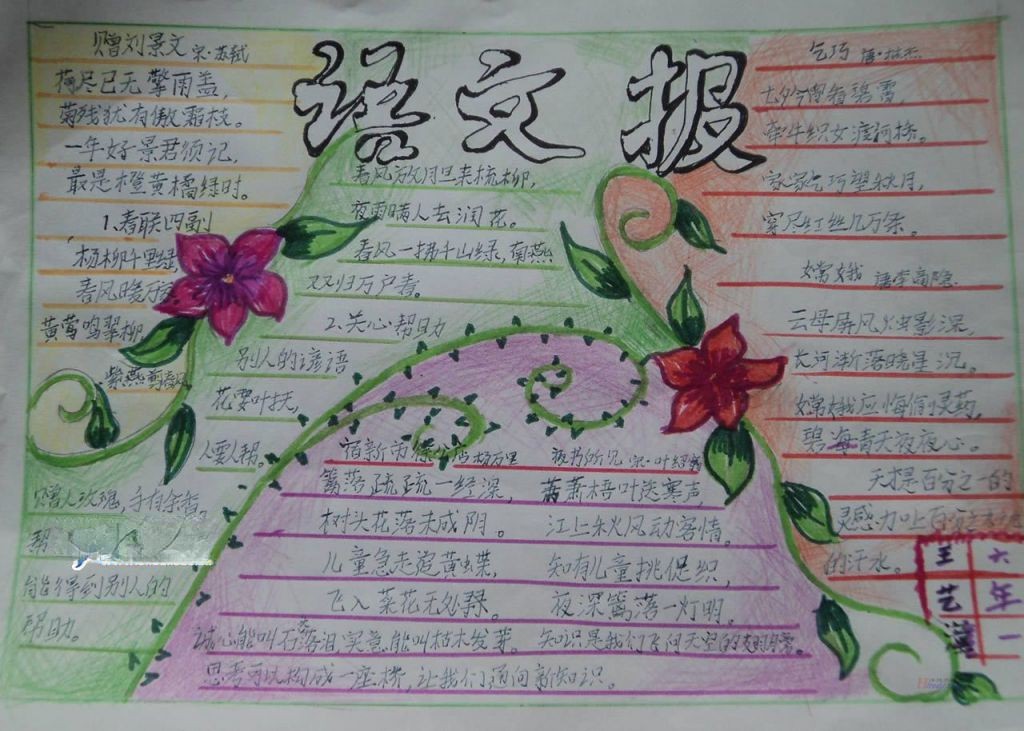 语文报
赠刘景文 宋·苏轼
荷尽已无擎雨盖,
菊残犹有傲霜枝。
一年好景君须记,
最是橙黄橘绿时。
1.春联四副
杨柳千里绿
春风暖万
黄莺鸣翠柳
紫燕剪春风
春风放胆来梳柳,
夜雨瞒人去润花。
春风一拂千山绿,南燕
双归万户春。
2.关心帮助
别人的谚语
花要叶扶,
人要人帮。
赠人玫瑰,手有余香。
帮
能得到别人的
帮助。
宿新市徐公店 杨万里
篱落疏疏一经深,
树头花落未成阴。
儿童急走追黄蝶,
飞入菜花无处寻。
夜书所见 宋·叶绍翁
萧萧梧叶送寒声,
江上秋风动客情。
知有儿童挑促织,
夜深篱落一灯明。
诚心能叫石头落泪,实意能叫枯木发芽。
知识是我们飞向天空的
思考可以构成一座桥,让我们通向新知识。
乞巧 唐·林杰
七夕今宵看碧霄,
牵牛织女渡河桥。
家家乞巧望秋月,
穿尽红丝几万条。
嫦娥 唐李商隐
云母屏风烛影深,
长河渐落晓星沉。
嫦娥应悔偷灵药,
碧海青天夜夜心。
天才是百分之一的
灵感,加上百分之九十九
的汗水。
六年一
王艺潼